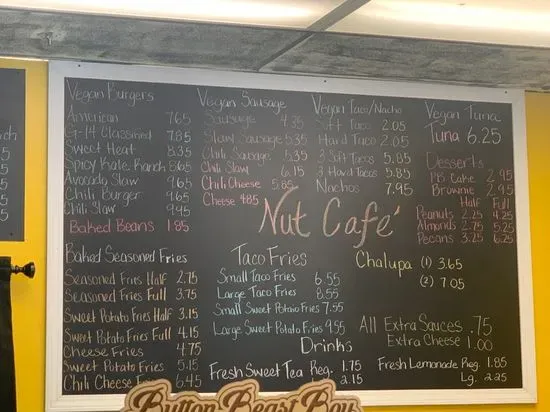 Vegan Burgers
American 7.65
G-14 Classified 7.85
Sweet Heat 8.35
Spicy Kale Ranch 8.65
Avocado Slaw 9.65
Chili Burger 9.65
Chili Slaw 9.95
Baked Beans 1.85
Baked Seasoned Fries
Seasoned Fries Half 2.75
Seasoned Fries Full 3.75
Sweet Potato Fries Half 3.15
Sweet Potato Fries Full 4.15
Cheese Fries 4.75
Sweet Potato Fries 5.15
Chili Cheese 6.45
Vegan Sausage
Sausage 4.35
Slaw Sausage 5.35
Chili Sausage 5.35
Chili Slaw 6.15
Chili Cheese 5.85
Cheese 4.85
Vegan Taco/Nacho
Soft Taco 2.05
Hard Taco 2.05
3 Soft Tacos 5.85
3 Hard Tacos 5.85
Nachos 7.95
Vegan Tuna
Tuna 6.25
Desserts
PB Cake 2.95
Brownie 2.95
Half Full
Peanuts 2.25 4.25
Almonds 2.75 5.25
Pecans 3.25 6.25
Nut Café
Taco Fries
Small Taco Fries 6.55
Large Taco Fries 8.55
Small Sweet Potato Fries 7.55
Large Sweet Potato Fries 9.55
Chalupa (1) 3.65
(2) 7.05
All Extra Sauces .75
Extra Cheese 1.00
Drinks
Fresh Sweet Tea Reg. 1.75
2.15
Fresh Lemonade Reg. 1.85
Lg. 2.25
Button Beast Boy